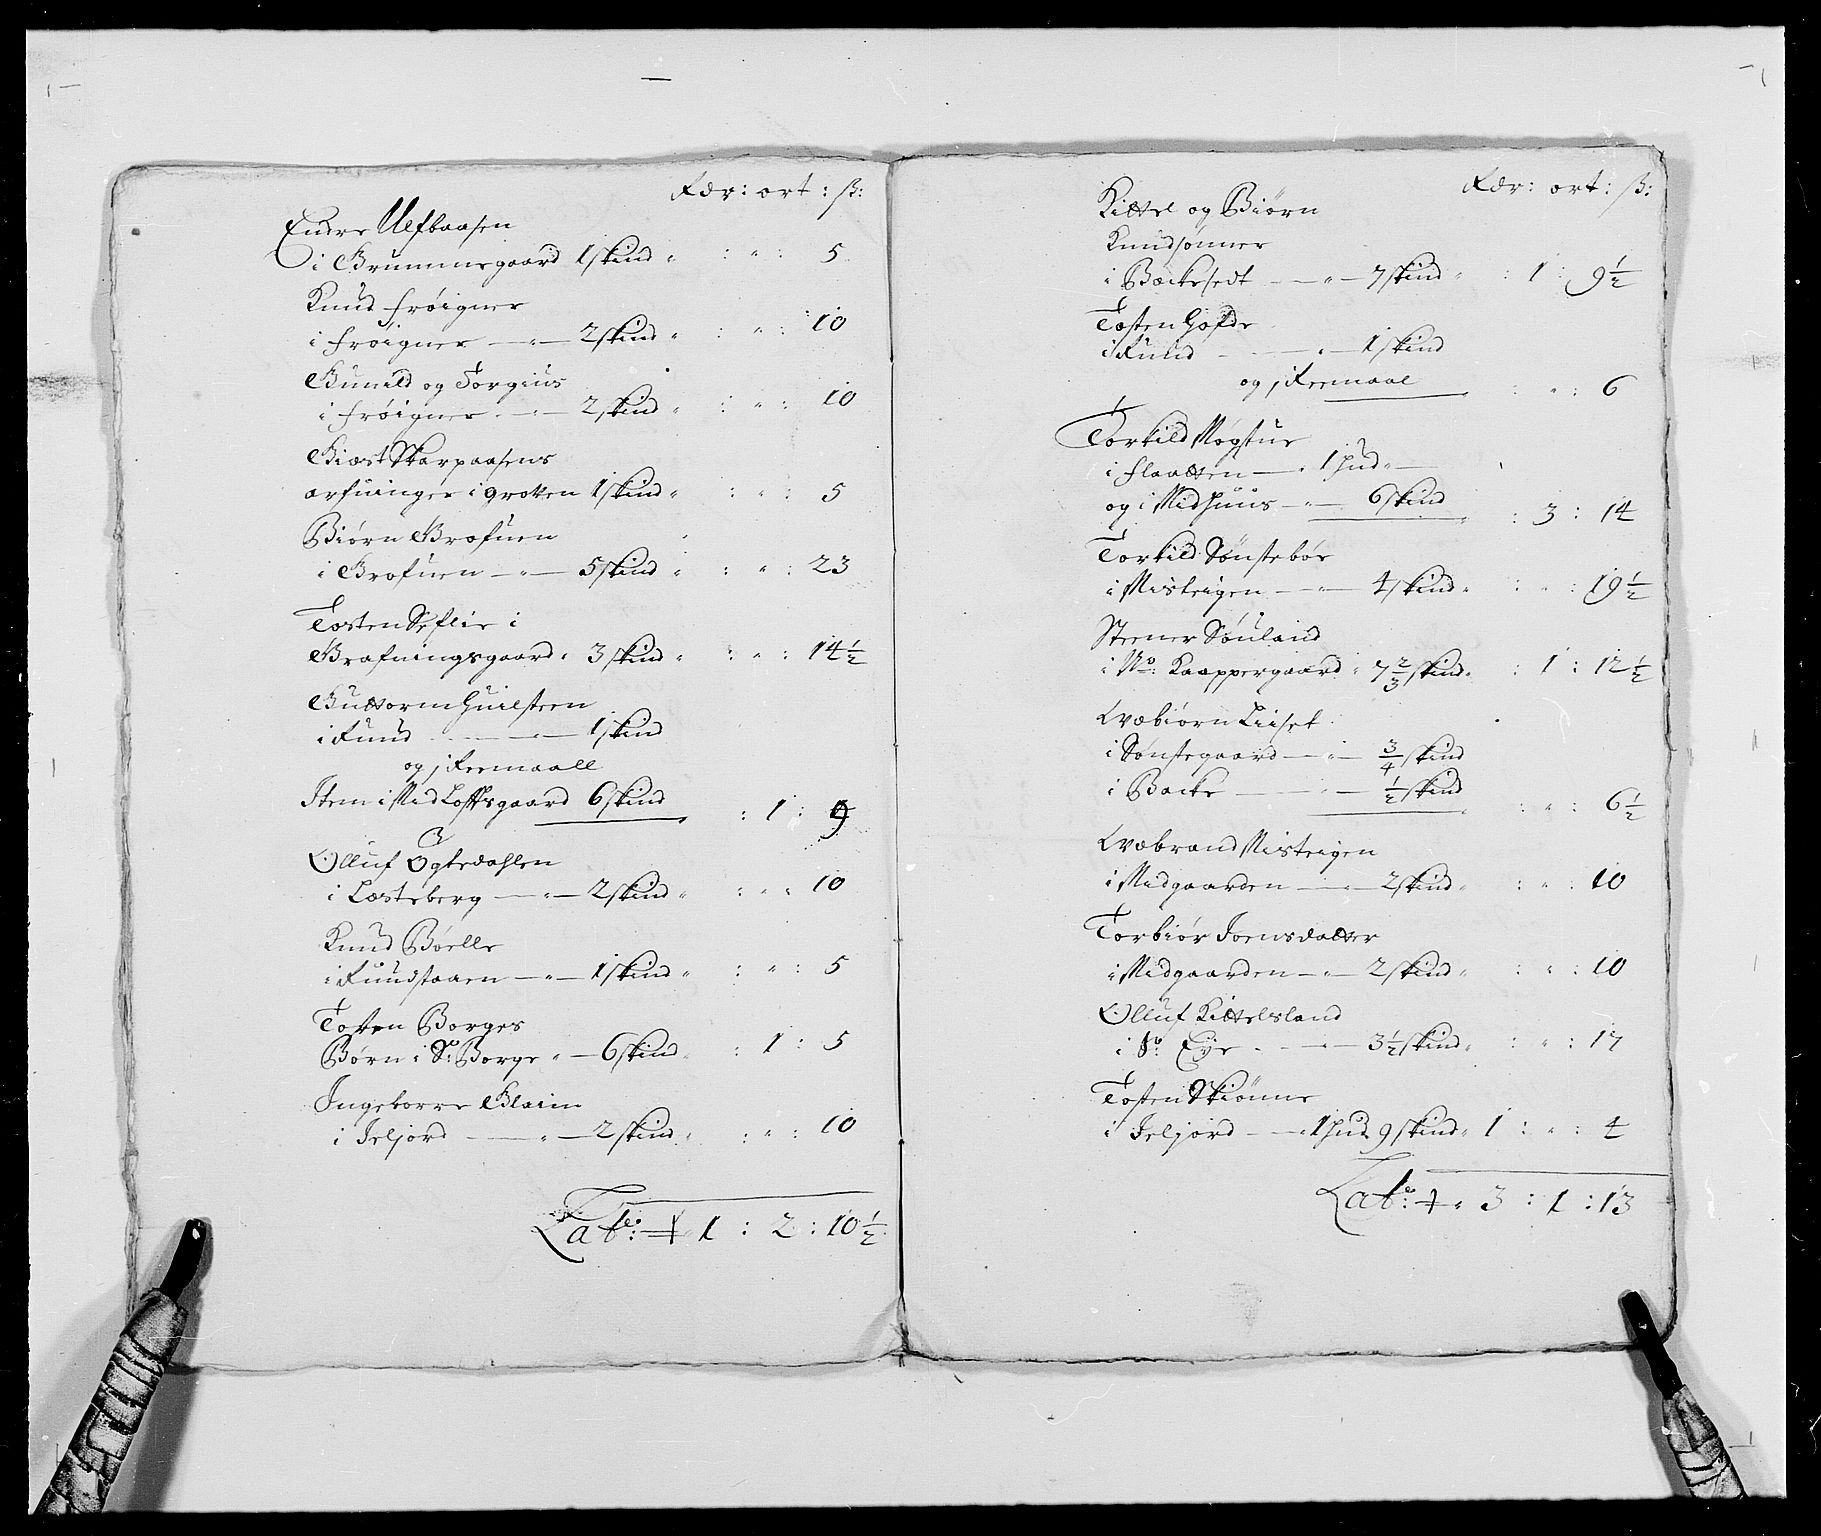 Rdr: ort: ß:
Endre Ulfbaasen
i Grummsgaard 1 skind " : " : 5
Knud Frøigner
i Frøigner — " — 2 skind " : " : 10
Gunild og Torgius
i Frøigner — " — 2 skind " : " : 10
Giæst Skarpaasens
arfuinger i Grotten 1 skind " : " : 5
Biørn Grafuen
i Grafuen — " — 5 skind " : " : 23
Tosten Seflie i
Grafningsgaard " 3 skind " : " : 14½
Guttorm Huilsteen
i Rund — " — 1 skind
og j Reemaall
Item i Mid Loftsgaard 6 skind : 1 : 9
Olluf Ogtedahlen
i Læsteberg — " — 2 skind " : " : 10
Knud Bøelle
i Rundstaaen — " — 1 skind " : " : 5
Tosten Borges
Børn i Sr: Borge " — 6 skind " : 1 : 5
Ingeborre Glaim
i Seljord — " — 2 skind " : " : 10
Late: 1 : 2 : 10½
Rdr: ort: ß:
Kittel og Biørn
Knudsønner
i Bæckesedt — " — 7 skind " : 1 : 9½
Tosten Hofde
i Rund — " — 1 skind
og j Reemaal : " : 6
Torkild Møgstue
i Flaatten — " 1 hud " —
og i Midhuus — " — 6 skind " : 3 : 14
Torkild Sønstebøe
i Misteigen — " — 4 skind " : " : 19½
Steener Sønland
i No: Kaappergaard " 7⅔ skind " : 1 : 12½
Wæbiørn Liiset
i Sønstegaard — " — ¾ skind
i Backe — " — ½ skind : " : 6½
Wæbrand Misteigen
i Midgaarden — " — 2 skind " : " : 10
Torbiør Joensdatter
i Midgaarden — " — 2 skind " : " : 10
Olluf Kittelsland
i Sr: Eije — " — 3½ skind " : " : 17
Tosten Skiønne
i Seljord — " 1 hud 9 skind " 1 : " : 4
Late: " 3 : 1 : 13